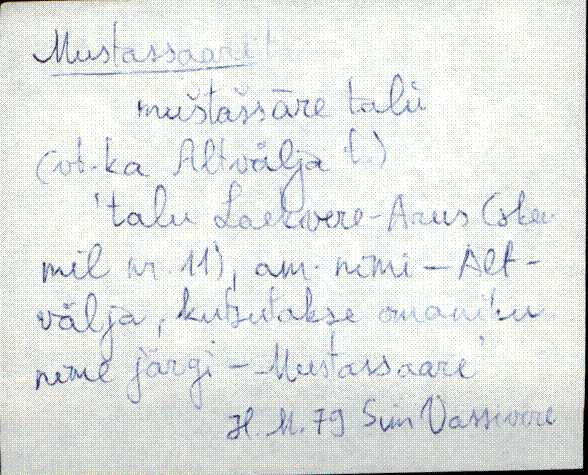 Mustassaare t
muštaššāre talù
(vt. ka Altvälja t.)
'talu Laekvere-Arus (skee-
mil nr. 11), am. nimi – Alt-
välja, kutsutakse omaniku
nime järgi – Mustassaare'
H. M. 79 Sim Vassivere